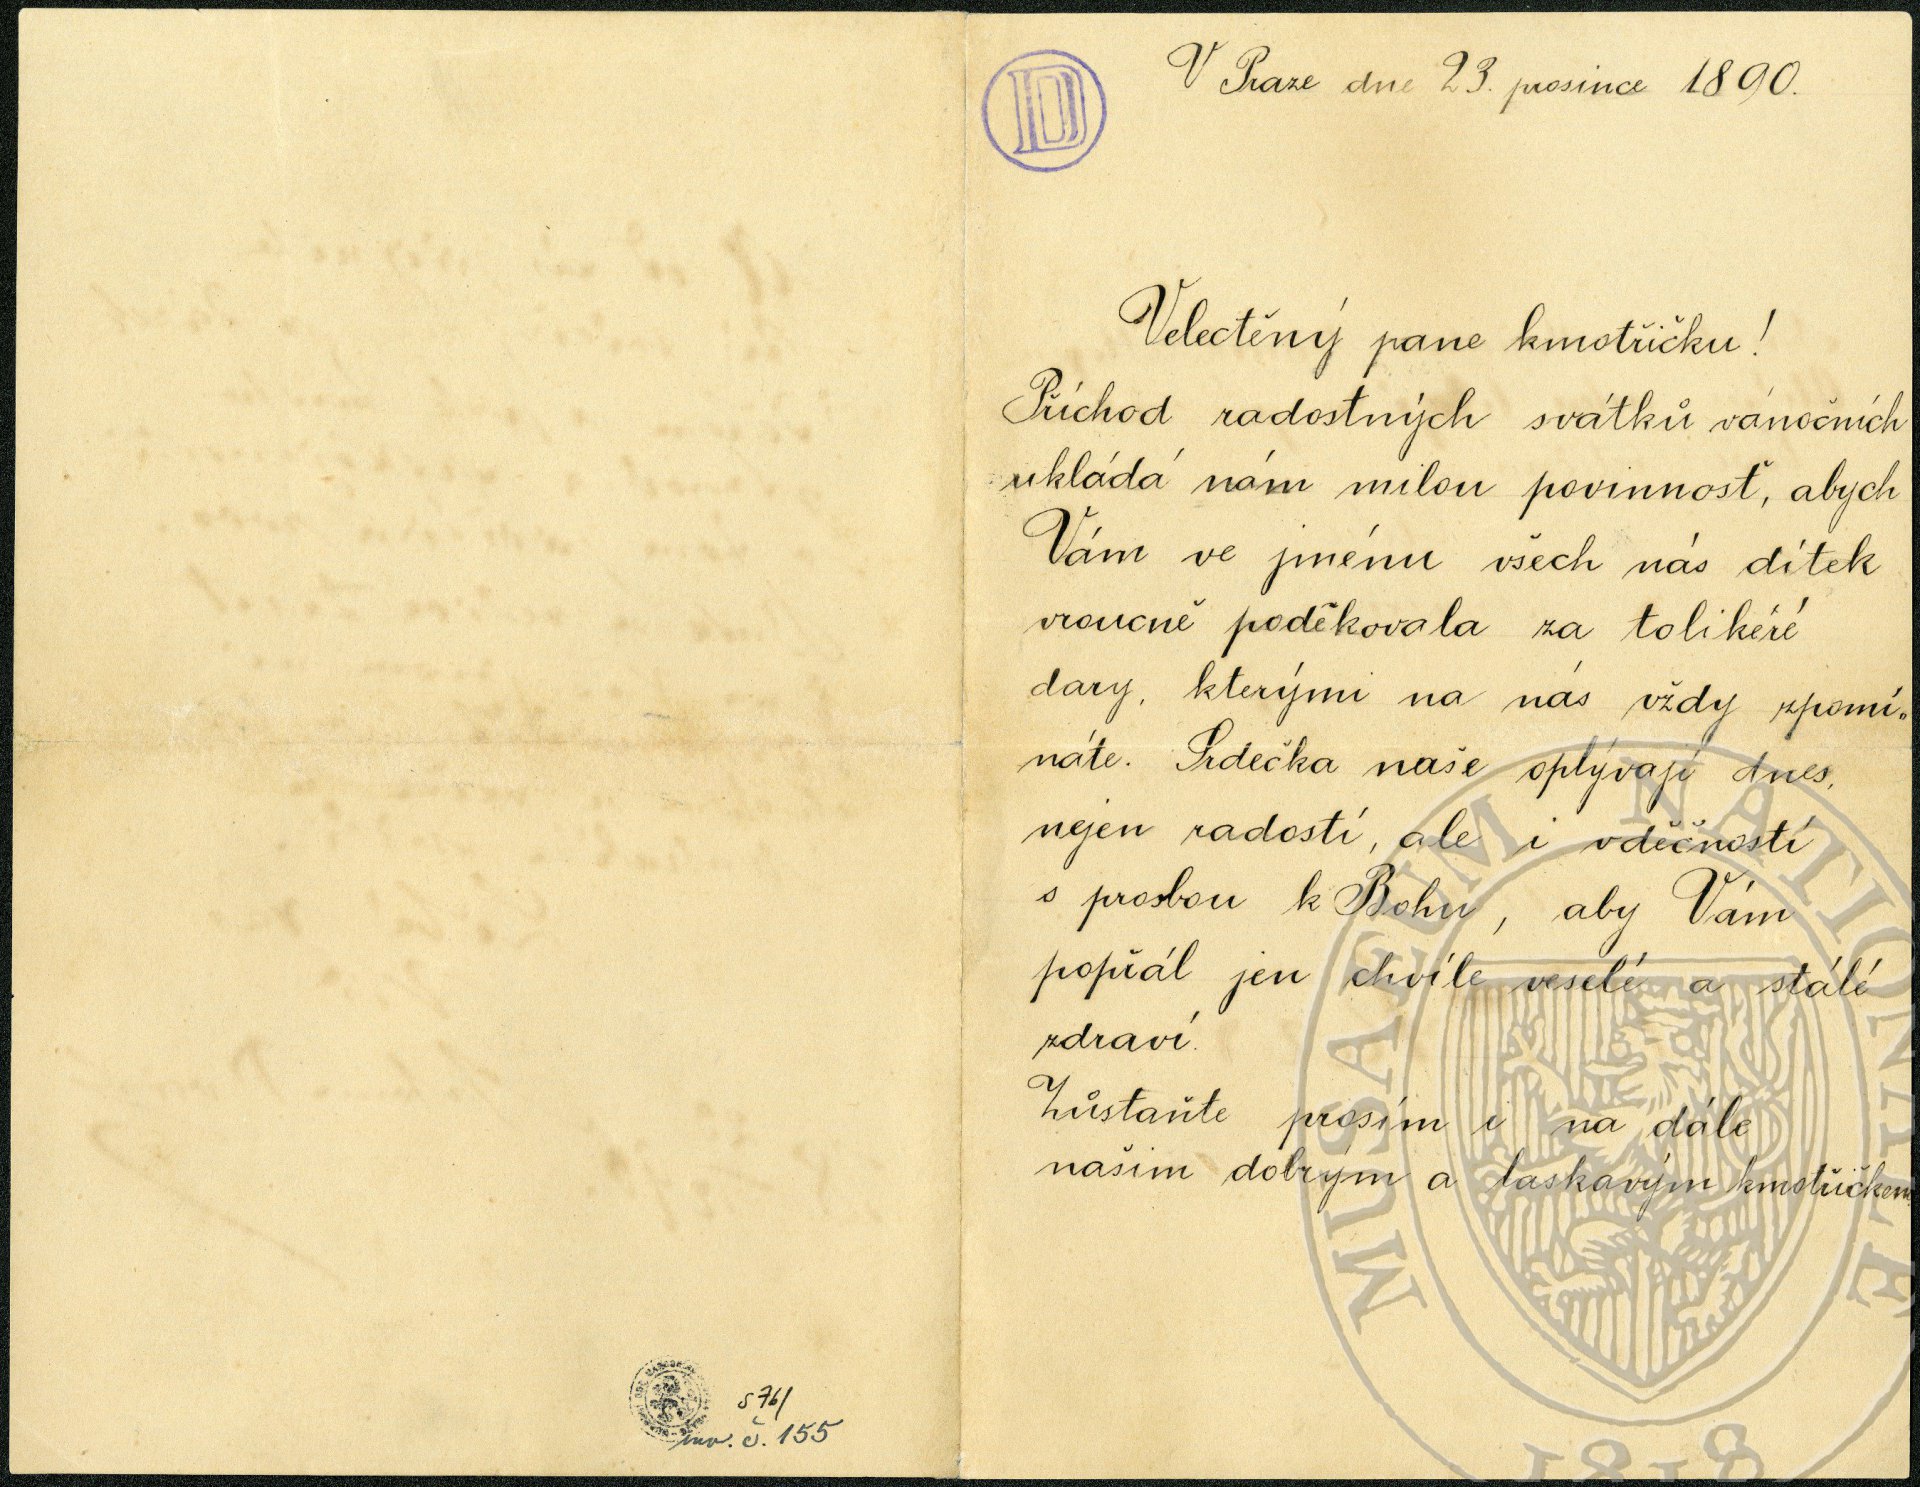 V Praze dne 23. prosince 1890.
Velectěný pane kmotřičku!
Příchod radostných svátků vánočních
ukládá nám milou povinnosť, abych
Vám ve jménu všech nás dítek
vroucně poděkovala za tolikéré
dary, kterými na nás vždy zpomí„
náte. Srdečka naše oplývají dnes,
nejen radostí, ale i vděčností
s prosbou k Bohu, aby Vám
popřál jen chvíle veselé a stálé
zdraví.
Zůstaňte prosím i na dále
našim dobrým a laskavým kmotřičkem
MUSAEUM NATIONALE
1818
D
S 76/
inv. č. 155